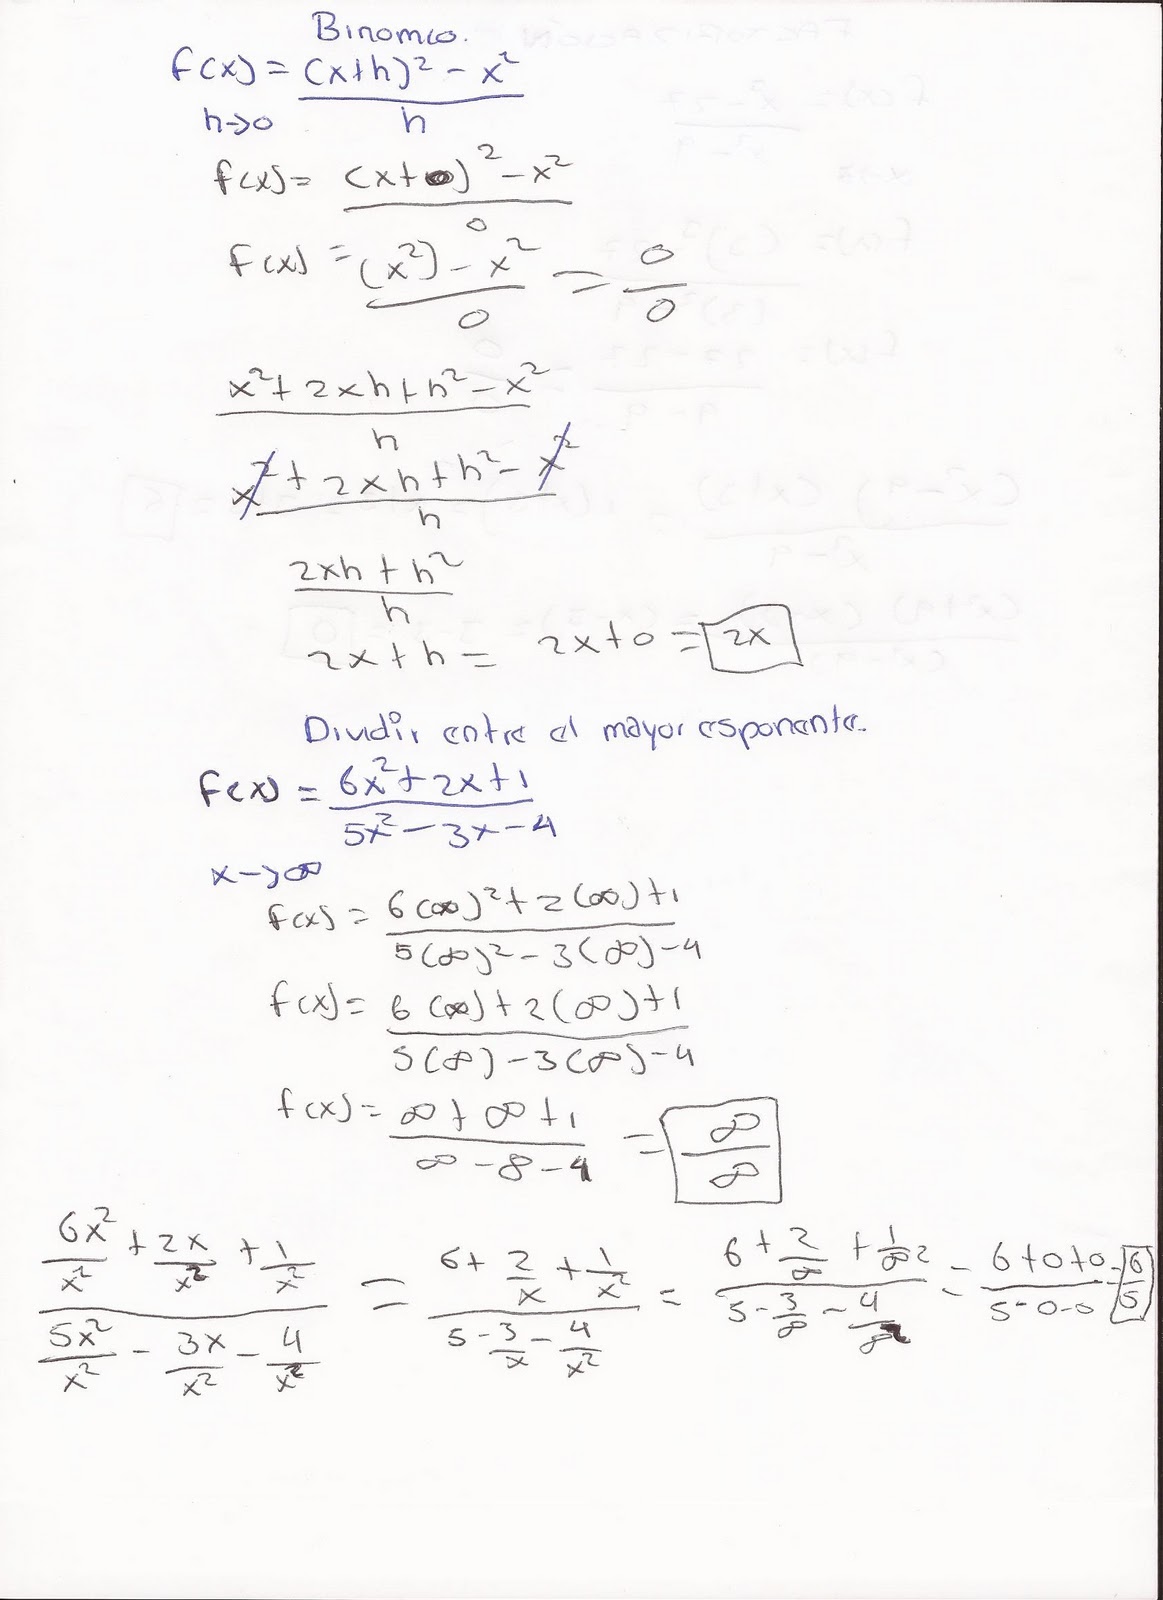 Binomio.
f(x) = (x+h)² - x² / h
h→0
f(x) = (x+0)² - x² / 0
f(x) = (x²) - x² / 0 = 0/0
x² + 2xh + h² - x² / h
x² + 2xh + h² - x² / h
2xh + h² / h
2x + h = 2x + 0 = 2x
Dividir entre el mayor esponente.
f(x) = 6x² + 2x + 1 / 5x² - 3x - 4
x→∞
f(x) = 6(∞)² + 2(∞) + 1 / 5(∞)² - 3(∞) - 4
f(x) = 6(∞) + 2(∞) + 1 / 5(∞) - 3(∞) - 4
f(x) = ∞ + ∞ + 1 / ∞ - ∞ - 4 = ∞/∞
6x²/x² + 2x/x² + 1/x² / 5x²/x² - 3x/x² - 4/x² = 6 + 2/x + 1/x² / 5 - 3/x - 4/x² = 6 + 2/∞ + 1/∞² / 5 - 3/∞ - 4/∞² = 6 + 0 + 0 / 5 - 0 - 0 = 6/5